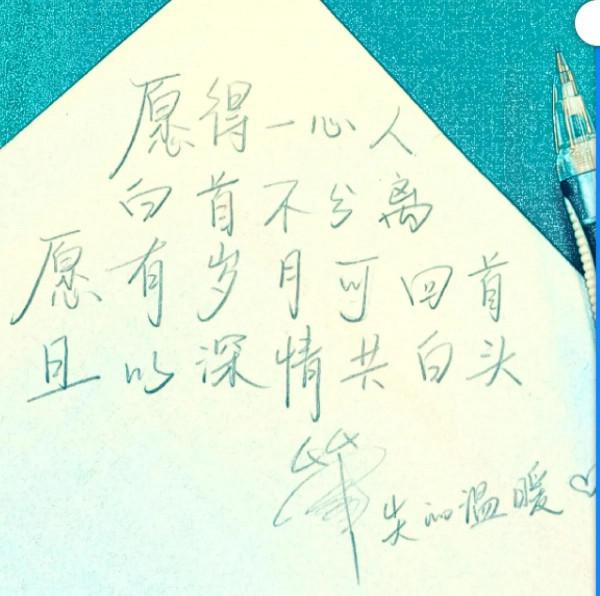 愿得一心人
白首不分离
愿有岁月可回首
且以深情共白头
笔尖的温暖